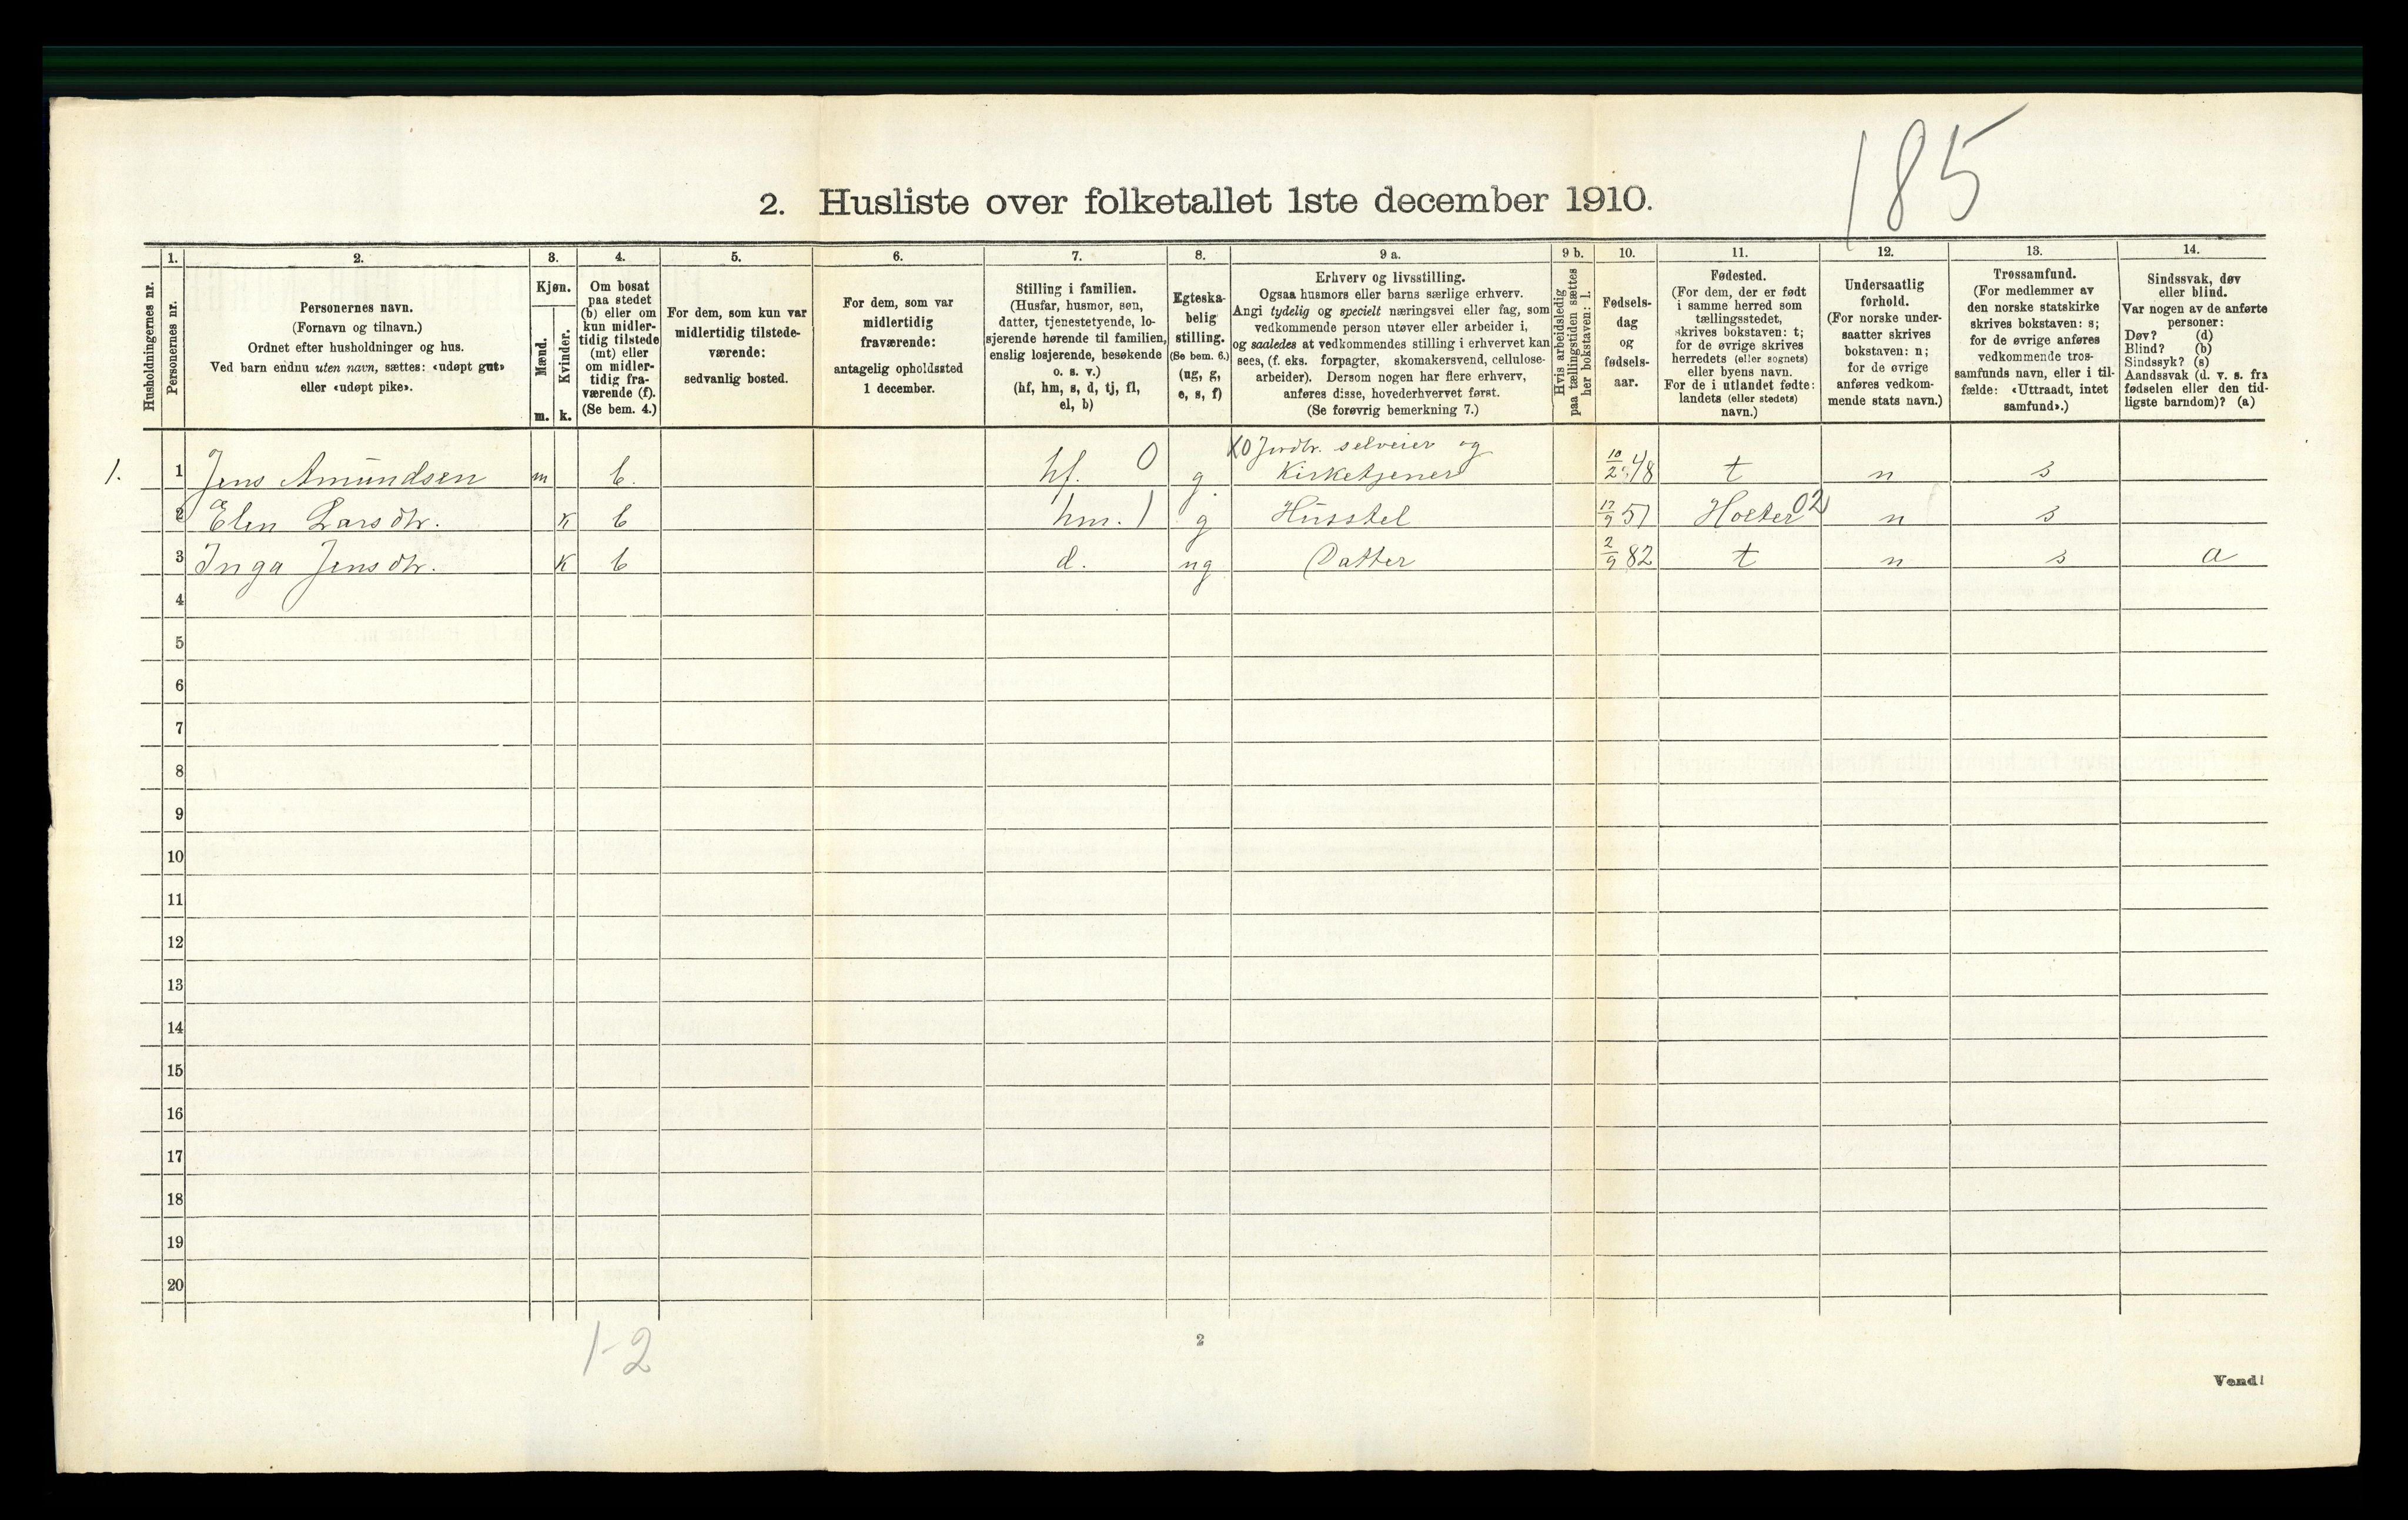 185
2. Husliste over folketallet 1ste december 1910.
Husholdningernes nr.
1.
Personernes nr.
2.
Personernes navn.
(Fornavn og tilnavn.)
Ordnet efter husholdninger og hus.
Ved barn endnu uten navn, sættes: «udøpt gut»
eller «udøpt pike».
3.
Kjøn.
Mænd.
m.
Kvinder.
k.
4.
Om bosat
paa stedet
(b) eller om
kun midler-
tidig tilstede
(mt) eller
om midler-
tidig fra-
værende (f).
(Se bem. 4.)
5.
For dem, som kun var
midlertidig tilstede-
værende:
sedvanlig bosted.
6.
For dem, som var
midlertidig
fraværende:
antagelig opholdssted
1 december.
7.
Stilling i familien.
(Husfar, husmor, søn,
datter, tjenestetyende, lo-
sjerende hørende til familien,
enslig losjerende, besøkende
o. s. v.)
(hf, hm, s, d, tj, fl,
el, b)
8.
Egteska-
belig
stilling.
(Se bem. 6.)
(ug, g,
e, s, f)
9 a.
Erhverv og livsstilling.
Ogsaa husmors eller barns særlige erhverv.
Angi tydelig og specielt næringsvei eller fag, som
vedkommende person utøver eller arbeider i,
og saaledes at vedkommendes stilling i erhvervet kan
sees, (f. eks. forpagter, skomakersvend, cellulose-
arbeider). Dersom nogen har flere erhverv,
anføres disse, hovederhvervet først.
(Se forøvrig bemerkning 7.)
9 b.
Hvis arbeidsledig
paa tællingstiden sættes
her bokstaven: l.
10.
Fødsels-
dag
og
fødsels-
aar.
11.
Fødested.
(For dem, der er født
i samme herred som
tællingsstedet,
skrives bokstaven: t;
for de øvrige skrives
herredets (eller sognets)
eller byens navn.
For de i utlandet fødte:
landets (eller stedets)
navn.)
12.
Undersaatlig
forhold.
(For norske under-
saatter skrives
bokstaven: n;
for de øvrige
anføres vedkom-
mende stats navn.)
13.
Trossamfund.
(For medlemmer av
den norske statskirke
skrives bokstaven: s;
for de øvrige anføres
vedkommende tros-
samfunds navn, eller i til-
fælde: «Uttraadt, intet
samfund».)
14.
Sindssvak, døv
eller blind.
Var nogen av de anførte
personer:
Døv? (d)
Blind? (b)
Sindssyk? (s)
Aandssvak (d. v. s. fra
fødselen eller den tid-
ligste barndom)? (a)
X0 Jordbr. selveier og
1. 1 Jens Amundsen m b. hf. 0 g. Kirketjener 10/2 48 t n s
2 Elen Larsdtr. k b hm. 1 g Husstel 17/9 51 02 n s
3 Inga Jensdtr. k b d. ug Datter 2/9 82 t n s a
4
5
6
7
8
9
10
11
12
13
14
15
16
17
18
19
20
1-2
2
Vend!